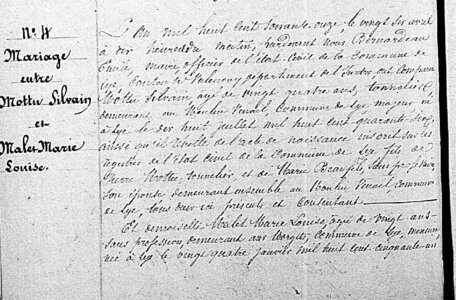 N° 4
Mariage
entre
Mottu Silvain
et
Malet Marie
Louise.
L'An mil huit cent soixante onze, le vingt six avril
à dix heures du matin, pardevant nous Bernardeau
maire officier de l'état civil de la Commune de
Lye Canton de Valençay, département de l'Indre, est comparu
Mottu Silvain, âgé de vingt quatre ans, tonnelier
demeurant au Moulin commune de Lye majeur né
à Lye le dix huit juillet mil huit cent quarante six,
ainsi qu'il résulte de l'acte de naissance inscrit sur les
registres de l'Etat civil de la Commune de Lye fils de
Pierre Mottu tonnelier et de Marie sans profession
son épouse demeurant ensemble au Moulin commune
de Lye, tous deux ici présents et consentant.
Et demoiselle Malet Marie Louise, agée de vingt ans
sans profession, demeurant aux commune de Lye, mineure,
née à Lye le vingt quatre janvier mil huit cent cinquante un